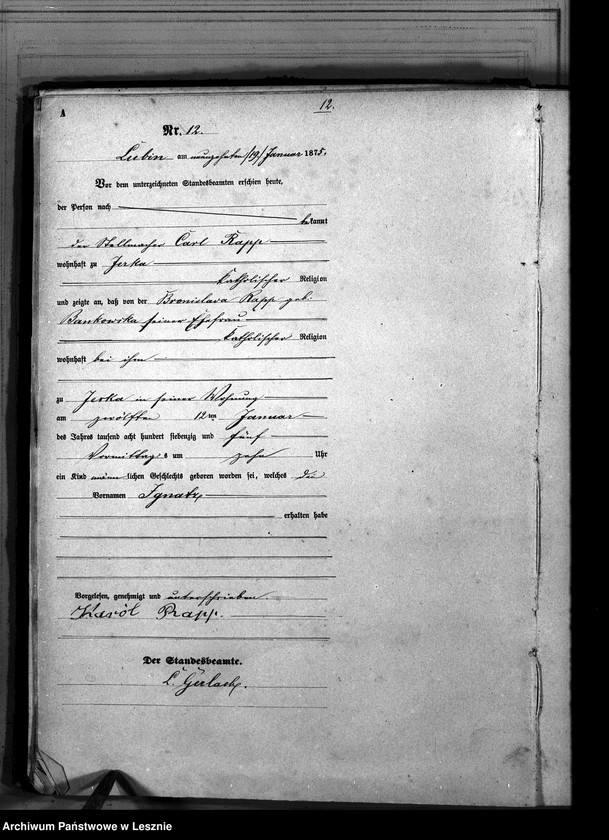 A
12.
Nr. 12.
Lubin am neunzehnten /19/ Januar 1875.
Vor dem unterzeichneten Standesbeamten erschien heute,
der Person nach
bekannt
der Stellmacher Carl Rapp
wohnhaft zu Jerka
katholischer Religion
und zeigte an, daß von der Bronislava Rapp geb.
Bankowska seiner Ehefrau
katholischer Religion
wohnhaft bei ihm
zu Jerka in seiner Wohnung
am zwölften 12ten Januar
des Jahres tausend acht hundert siebenzig und fünf
Vormittags um zehn Uhr
ein Kind männlichen Geschlechts geboren worden sei, welches den
Vornamen Ignatz
erhalten habe
Vorgelesen, genehmigt und unterschrieben.
Karól Rapp.
Der Standesbeamte.
Gerlach.
Archiwum Państwowe w Lesznie